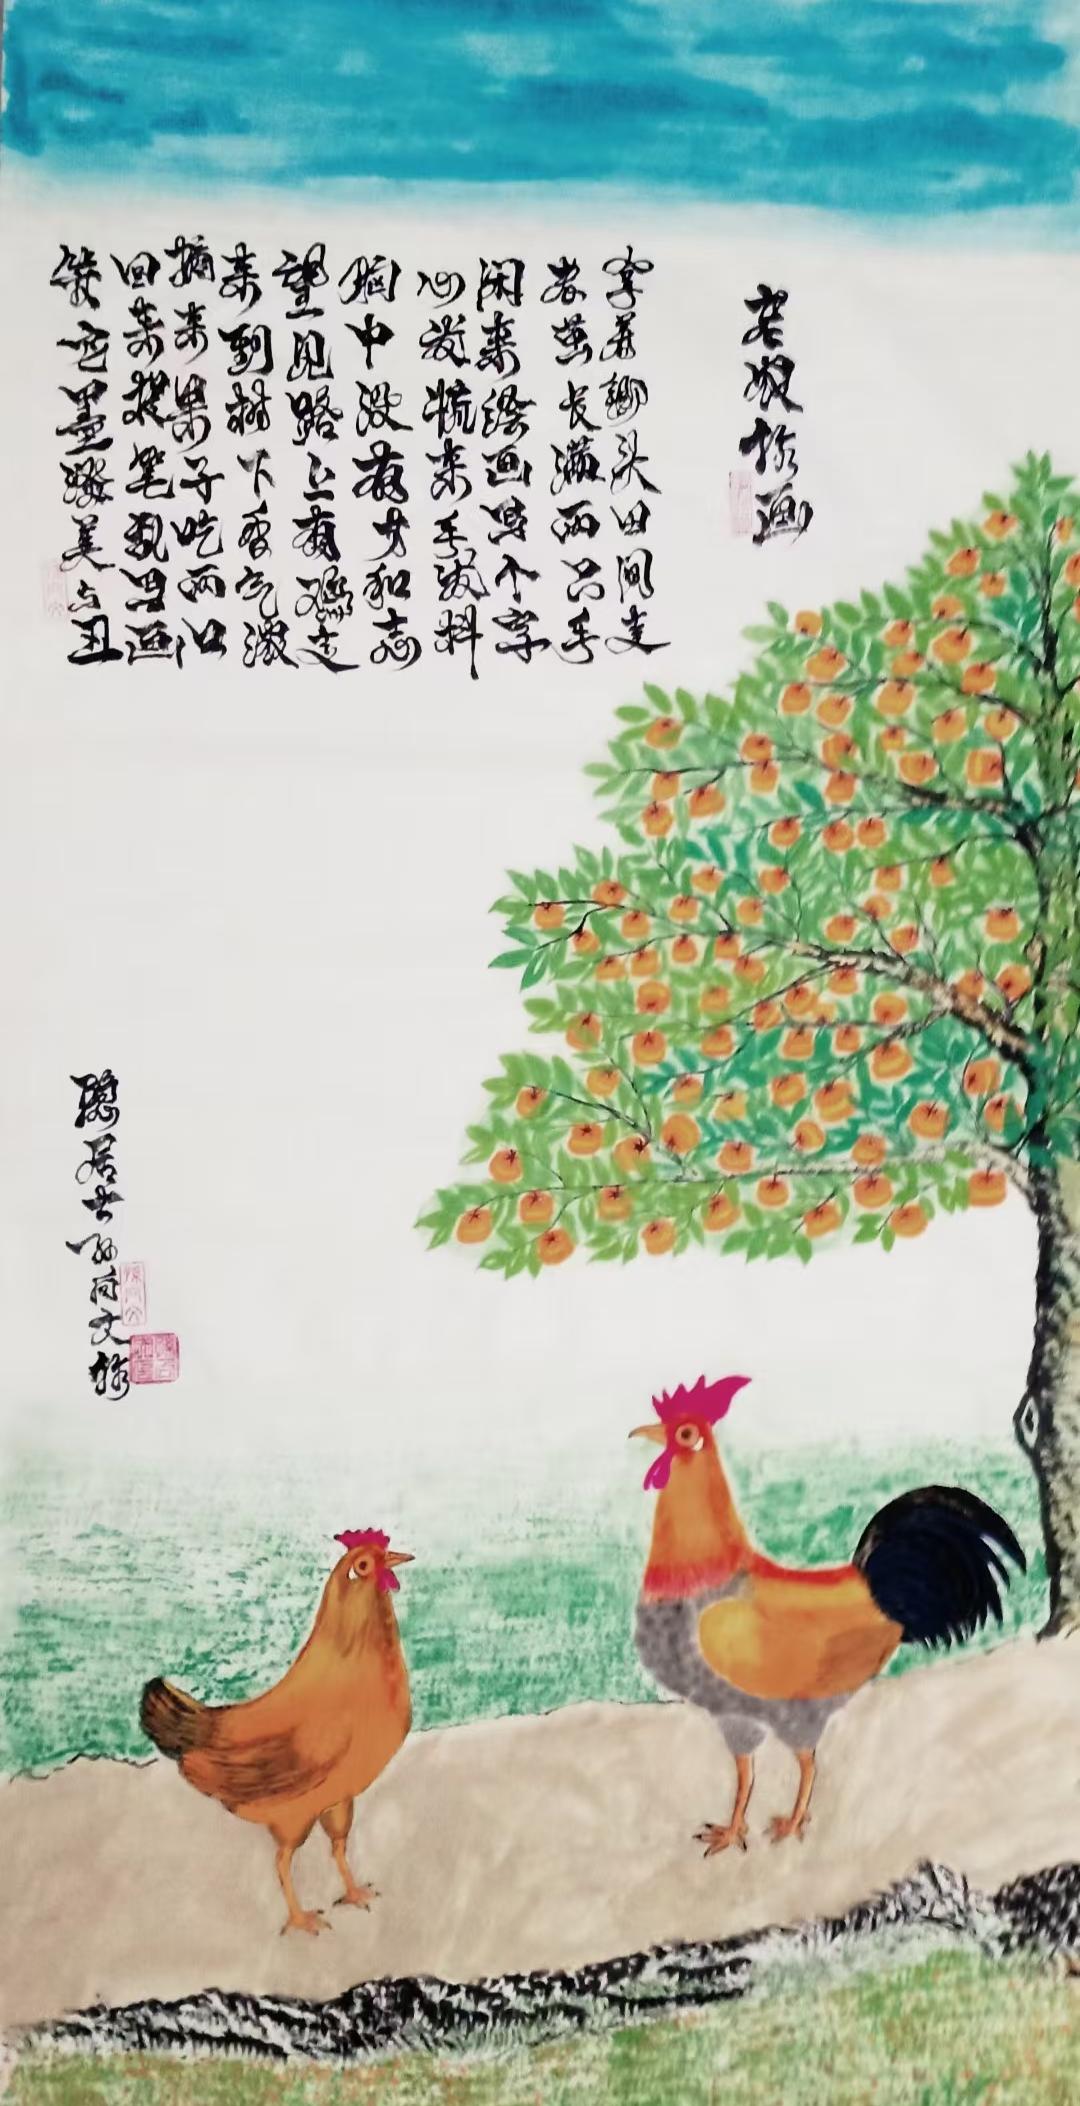 老农作画
掌着锄头田间走
老茧长满两只手
闲来绘画写个字
心发慌来手发抖
胸中没有才和志
望见路上有鸡走
来到树下香气浓
摘来果子吃两口
回来提笔乱写画
笑它墨泼美与丑
隐居士孙尚文作